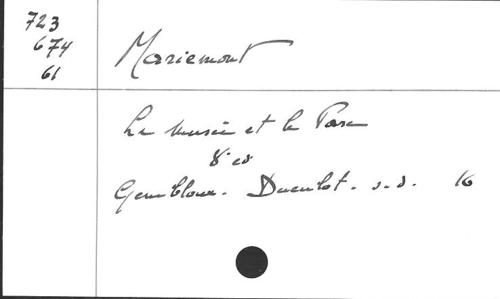 723
674
61
Mariemont
Le Musée et le Parc
8° éd
Gembloux. Duculot. s.d. 16